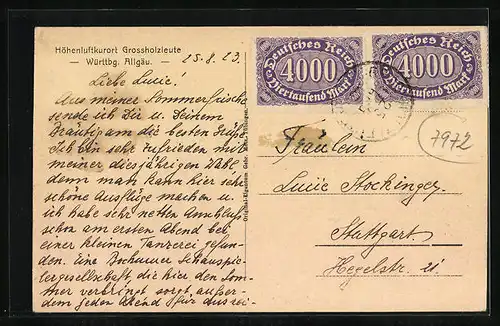 Höhenluftkurort Grossholzleute
— Württbg. Allgäu. —
25.8.23.
Liebe Lucie!
Aus meiner Sommerfrische
sende ich Dir u. Deinem
Bräutigam die besten Grüße.
Ich bin sehr zufrieden mit
meiner diesjährigen Wahl
denn man kann hier sehr
schöne Ausflüge machen u.
ich habe sehr netten Anschluß
schon am ersten Abend bei
einer kleinen Tanzerei gefun-
den. Eine Bochumer Schauspie-
lergesellschaft, die hier den Som-
mer verbringt sorgt außer-
dem jeden Abend für
Deutsches Reich
4000
Viertausend Mark
Deutsches Reich
4000
Viertausend Mark
7972
Fräulein
Lucie Stockinger
Stuttgart.
Hegelstr. 21